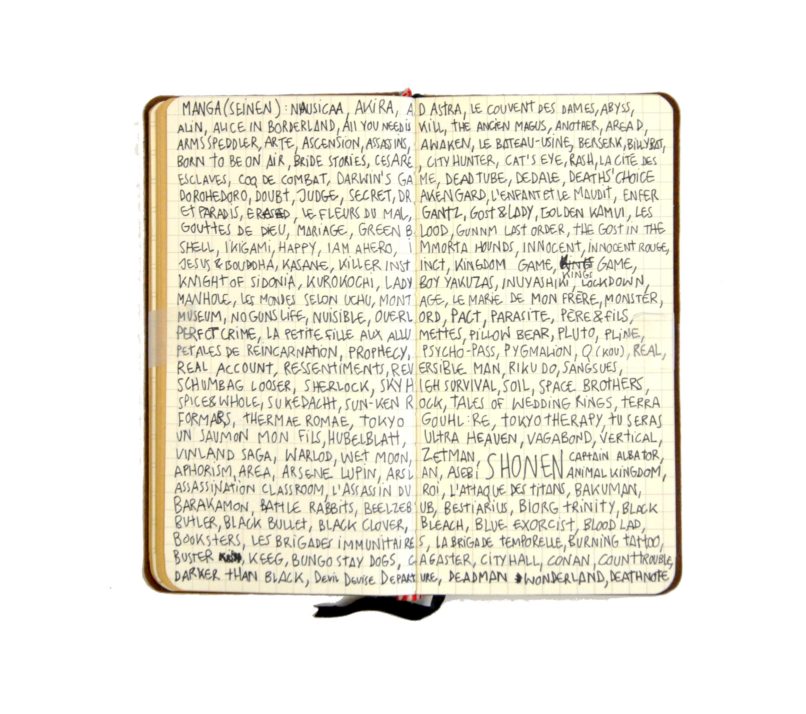 MANGA (SEINEN) : NAUSICAA, AKIRA, AD ASTRA, LE COUVENT DES DAMES, ABYSS,
ALIN, ALICE IN BORDERLAND, All YOU NEED IS KILL, THE ANCIEN MAGUS, ANOTHER, AREA D,
ARMS PEDDLER, ARTE, ASCENSION, ASSASSINS, AWAKEN, LE BATEAU-USINE, BERSERK, BILLYBAT,
BORN TO BE ON AIR, BRIDE STORIES, CESARE, CITY HUNTER, CAT'S EYE, RASH, LA CITÉ DES
ESCLAVES, COQ DE COMBAT, DARWIN'S GAME, DEAD TUBE, DEDALE, DEATHS'CHOICE
DOROHEDORO, DOUBT, JUDGE, SECRET, DRAKENGARD, L'ENFANT ET LE MAUDIT, ENFER
ET PARADIS, ERASED, LE FLEURS DU MAL, GANTZ, GOST & LADY, GOLDEN KAMUI, LES
GOUTTES DE DIEU, MARIAGE, GREEN BLOOD, GUNNM LAST ORDER, THE GOST IN THE
SHELL, IKIGAMI, HAPPY, I AM A HERO, IMMORTA HOUNDS, INNOCENT, INNOCENT ROUGE,
JESUS & BOUDDHA, KASANE, KILLER INSTINCT, KINGDOM GAME, KINGS GAME,
KNIGHT OF SIDONIA, KUROKOCHI, LADY BOY YAKUZAS, INUYASHIKI, LOCKDOWN,
MANHOLE, LES MONDES SELON UCHU, MONTAGE, LE MARIE DE MON FRÈRE, MONSTER,
MUSEUM, NO GUNS LIFE, NUISIBLE, OVERLORD, PACT, PARASITE, PÈRE & FILS,
PERFCT CRIME, LA PETITE FILLE AUX ALLUMETTES, PILLOW BEAR, PLUTO, PLINE,
PETALES DE REINCARNATION, PROPHECY, PSYCHO-PASS, PYGMALION, Q (KOU), REAL,
REAL ACCOUNT, RESSENTIMENTS, REVERSIBLE MAN, RIKU DO, SANGSUES,
SCHUMBAG LOOSER, SHERLOCK, SKY HIGH SURVIVAL, SOIL, SPACE BROTHERS,
SPICE & WHOLE, SUKEDACHT, SUN-KEN ROCK, TALES OF WEDDING RINGS, TERRA
FORMARS, THERMAE ROMAE, TOKYO GOUHL:RE, TOKYO THERAPY, TU SERAS
UN SAUMON MON FILS, HUBELBLATT, ULTRA HEAVEN, VAGABOND, VERTICAL,
VINLAND SAGA, WARLOD, WET MOON, ZETMAN, SHONEN CAPTAIN ALBATOR,
APHORISM, AREA, ARSENE LUPIN, ARSLAN, ASEBI ANIMAL KINGDOM,
ASSASSINATION CLASSROOM, L'ASSASSIN DU ROI, L'ATTAQUE DES TITANS, BAKUMAN,
BARAKAMON, BATTLE RABBITS, BEELZEBUB, BESTIARIUS, BIORG TRINITY, BLACK
BUTLER, BLACK BULLET, BLACK CLOVER, BLEACH, BLUE EXORCIST, BLOOD LAD,
BOOKSTERS, LES BRIGADES IMMUNITAIRES, LA BRIGADE TEMPORELLE, BURNING TATTOO,
BUSTER KEEG, BUNGO STAY DOGS, CAGASTER, CITY HALL, CONAN, COUNTTROUBLE,
DARKER THAN BLACK, DEVIL DEVISE DEPARTURE, DEADMAN WONDERLAND, DEATHNOTE